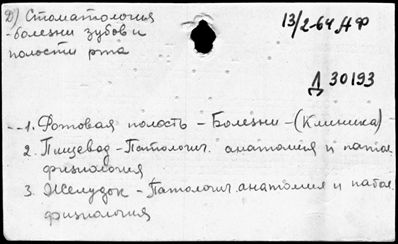 Д) Стоматология
-болезни зубов и
полости рта
13/2-64, НФ
Д 30193
1. Ротовая полость - Болезни - (Клиника)
2. Пищевод - Патологич. анатомия и патол.
физиология
3. Желудок - Патологич. анатомия и патол.
физиология